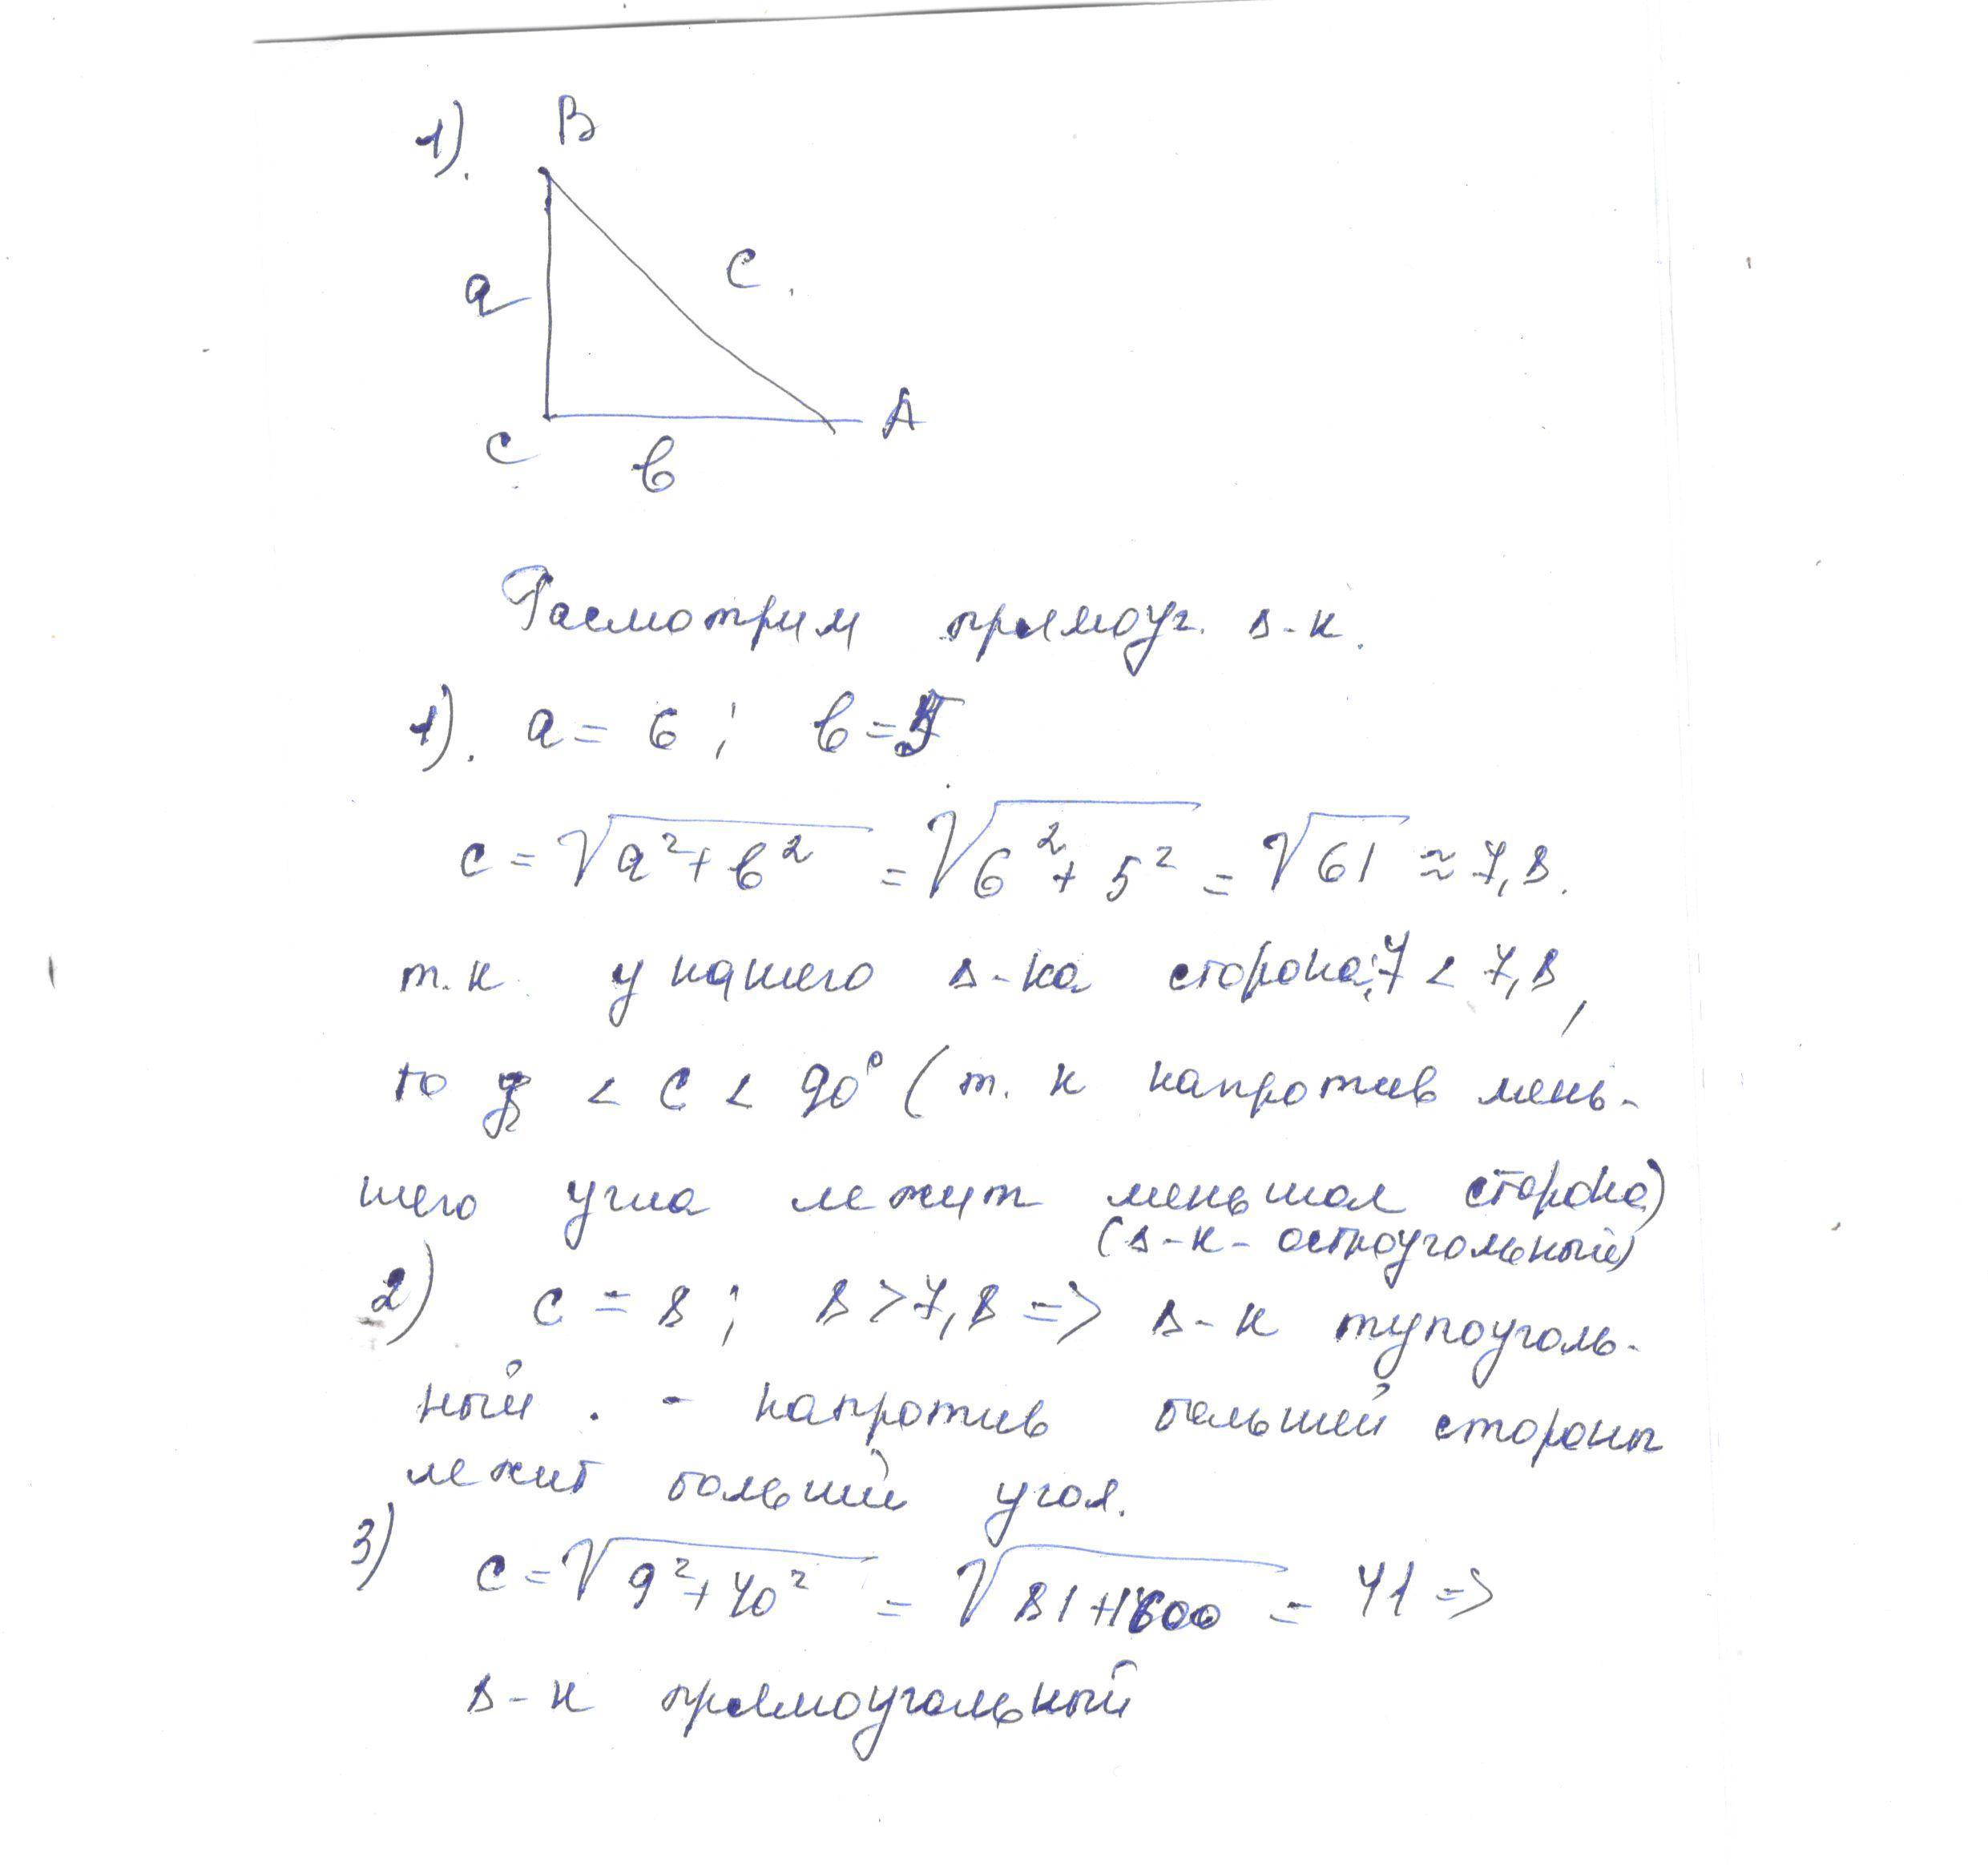 1).
B
a
c
C
b
A
Расмотрим прямоуг. Δ-к.
1). a = 6 ; b = 5
c = √a²+b² = √6²+5² = √61 ≈ 7,8.
т.к. у нашего Δ-ка сторона: 7 < 7,8,
то ∠ C < 90° (т. к напротив мень-
шего угла лежит меньшая сторона)
(Δ-к - остроугольный)
2) c = 8 ; 8 > 7,8 => Δ-к тупоуголь-
ный . - напротив большей стороны
лежит больший угол.
3) c = √9²+40² = √81+1600 = 41 =>
Δ-к прямоугольный